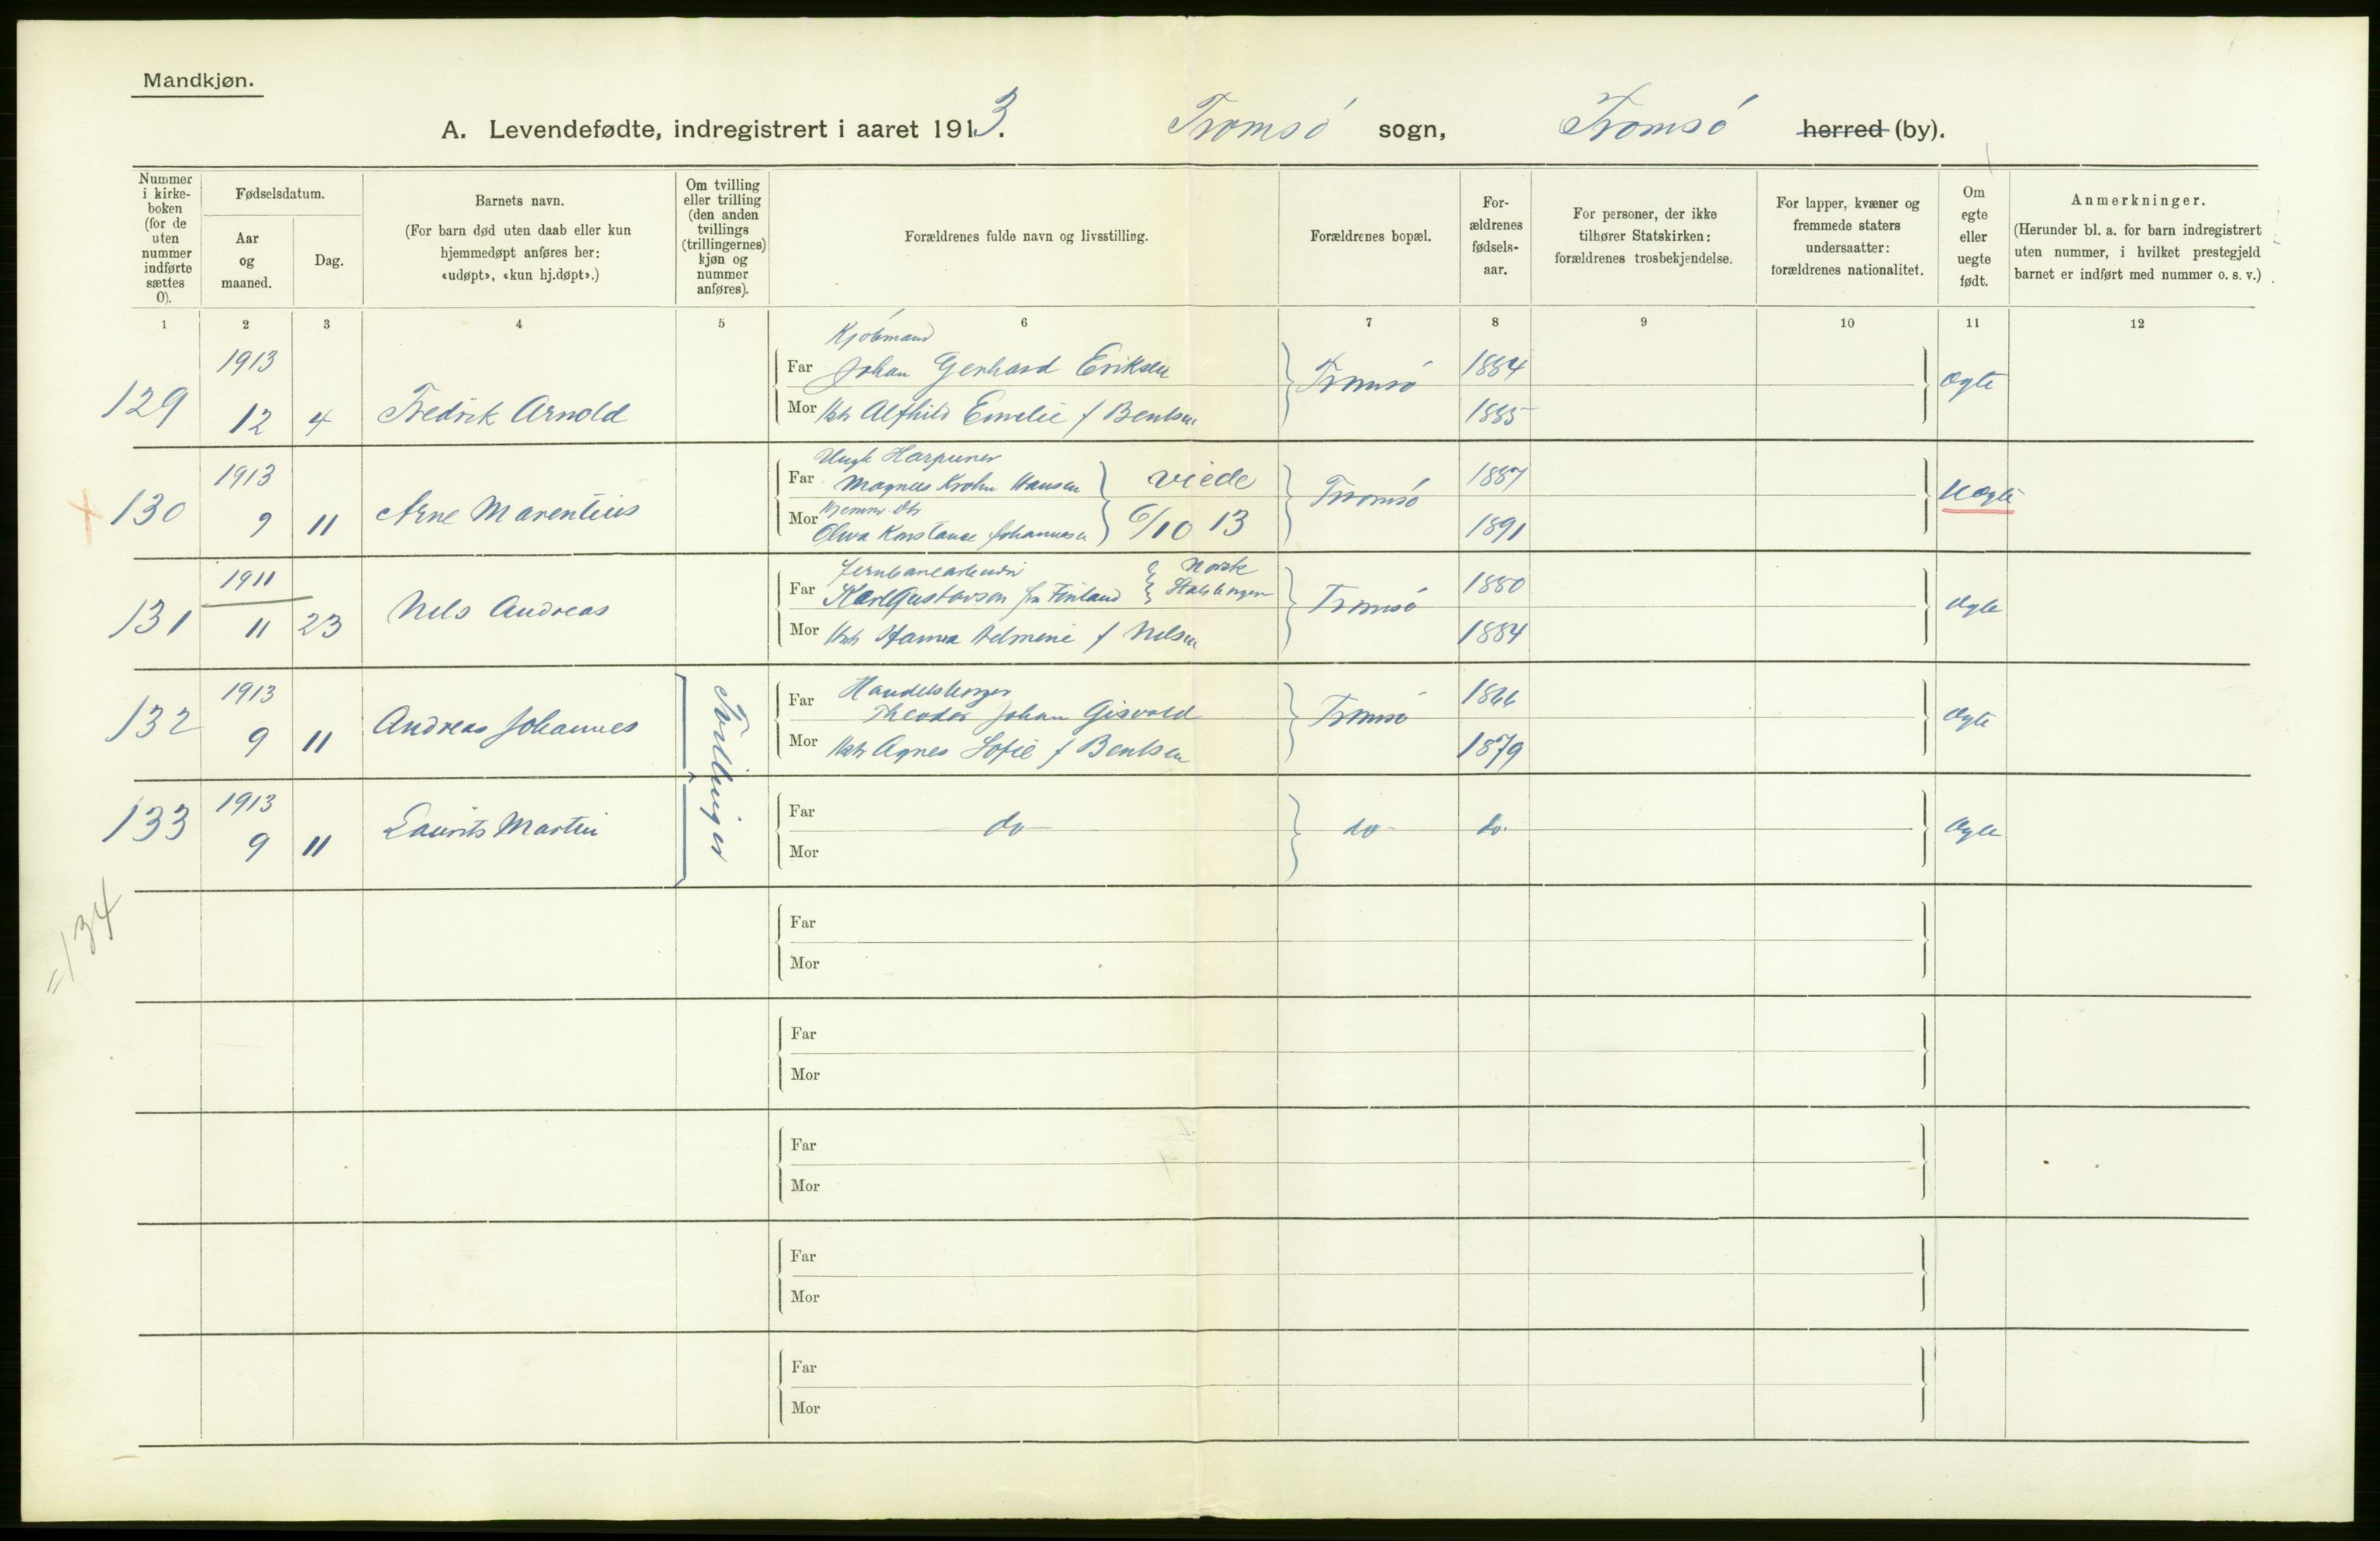 Mandkjøn.
A. Levendefødte, indregistrert i aaret 1913. Tromsö sogn, Tromsö herred (by).
Nummer i kirke-boken (for de uten nummer indførte sættes 0).
Fødselsdatum.
Aar og maaned.
Dag.
Barnets navn.
(For barn død uten daab eller kun hjemmedøpt anføres her: «udøpt», «kun hj.døpt».)
Om tvilling eller trilling (den anden tvillings (trillingernes) kjøn og nummer anføres).
Forældrenes fulde navn og livsstilling.
Forældrenes bopæl.
For-ældrenes fødsels-aar.
For personer, der ikke tilhører Statskirken: forældrenes trosbekjendelse.
For lapper, kvæner og fremmede staters undersaatter: forældrenes nationalitet.
Om egte eller uegte født.
Anmerkninger.
(Herunder bl. a. for barn indregistrert uten nummer, i hvilket prestegjeld barnet er indført med nummer o. s. v.)
1 2 3 4 5 6 7 8 9 10 11 12
Kjöbmand
1913 Far Johan Gerhard Eriksen Tromsö 1884 Ægte
129 12 4 Fredrik Arnold Mor Alfhild Emelie f Bentsen 1885
Ungk Harpuner
1913 Far Magnus Krohn Hansen viede Tromsö 1887 Uægte
130 9 11 Arne Marentius Mor Olwa Konstance Johannesen 6/10 13 1891
Jernbanearbeider Norsk
1911 Far Karl Gustavson fra Finland Statsborger Tromsö 1880 Ægte
131 11 23 Nils Andreas Mor Hanna f Nilsen 1884
Handelsborger
1913 Far Theodor Johan Gisvold Tromsö 1866 Ægte
132 9 11 Andreas Johannes Mor Agnes Sofie f Bentsen 1879
Tvillinger
1913 Far do do do Ægte
133 9 11 Laurits Martin Mor
=134
Far
Mor
Far
Mor
Far
Mor
Far
Mor
Far
Mor